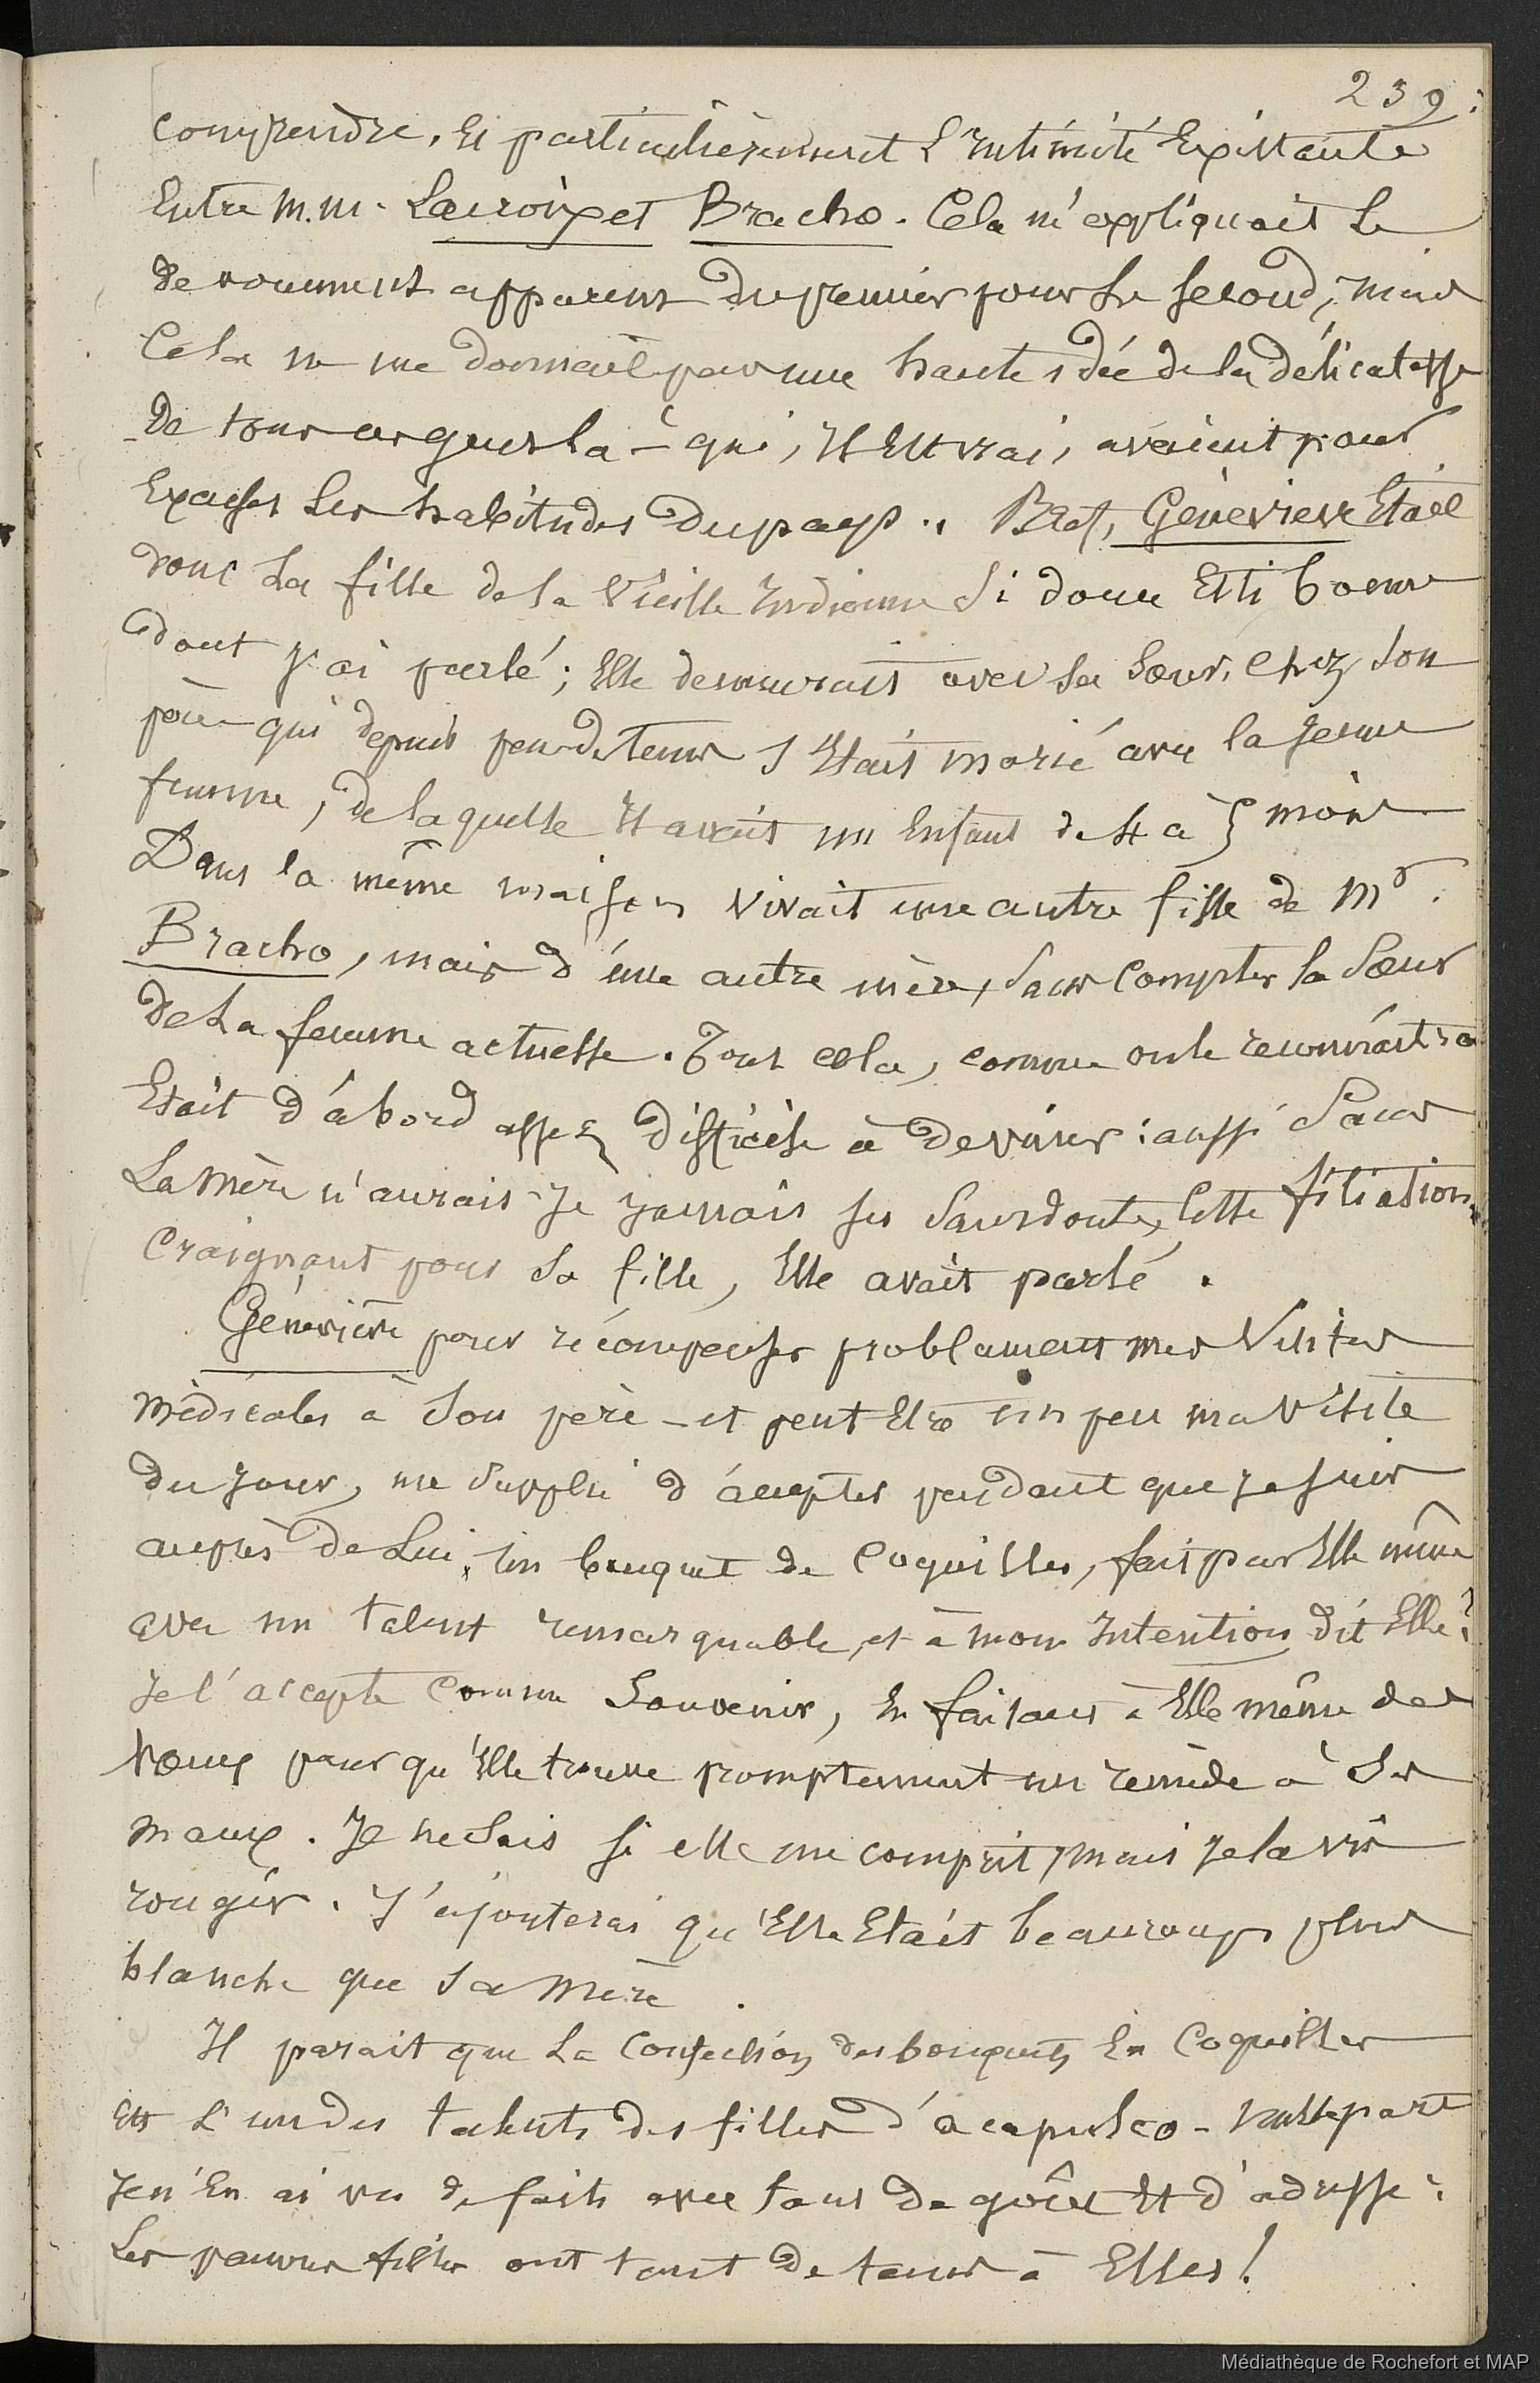 239.
comprendre, Et particulièrement L'Intimité Existante
Entre M.M. Lacroix et Bracho. Cela m'expliquait Le
devouement apparent du premier pour Le second, mais
Cela ne me donnait pas une haute idée de la délicatesse
De tous ces gens là - qui, Il Est vrai, avaient pour
Excuses Les habitudes du pays. Bref, Génevieve Etait
donc La fille de la Vieille Indienne Si douce Et Si bonne
Dont J'ai parlé; Elle demeurait avec sa Soeur, Chez Son
père qui depuis peu de tems S'Etait marié avec la Jeune
femme, de laquelle Il avait un Enfant de 4 à 5 mois
Dans la même maison vivait une autre fille de Mr.
Bracho, mais d'une autre mère, Sans Compter la Soeur
de La femme actuelle. Tout cela, comme on le reconnaitra
Etait d'abord assez difficile à deviner: aussi Sans
La Mère n'aurais-Je Jamais su Sans doute, Cette filiation,
Craignant pour Sa fille, Elle avait parlé.
Génevieve pour récompenser problament mes Visites
Médicales à Son père - et peut Etre un peu ma Visite
du Jour, me Supplie d'accepter pendant que Je suis
auprès de Lui, un bouquet de Coquilles, fait par Elle même
avec un talent remarquable, et à mon Intention dit Elle:
Je l'accepte Comme Souvenir, En faisant à Elle même des
voeux pour qu'Elle trouve promptement un remède à Ses
maux. Je ne Sais Si elle me comprit, mais Je la vis
rougir. J'ajouterai qu'Elle Etait beaucoup plus
blanche que Sa Mère.
Il parait que La Confection des bouquets En Coquilles
Est L'un des talents des filles d'acapulco - Nulle part
Je n'En ai vu de faits avec tant de goût Et d'adresse:
Les pauvres filles ont tant de tems à Elles!
Médiathèque de Rochefort et MAP